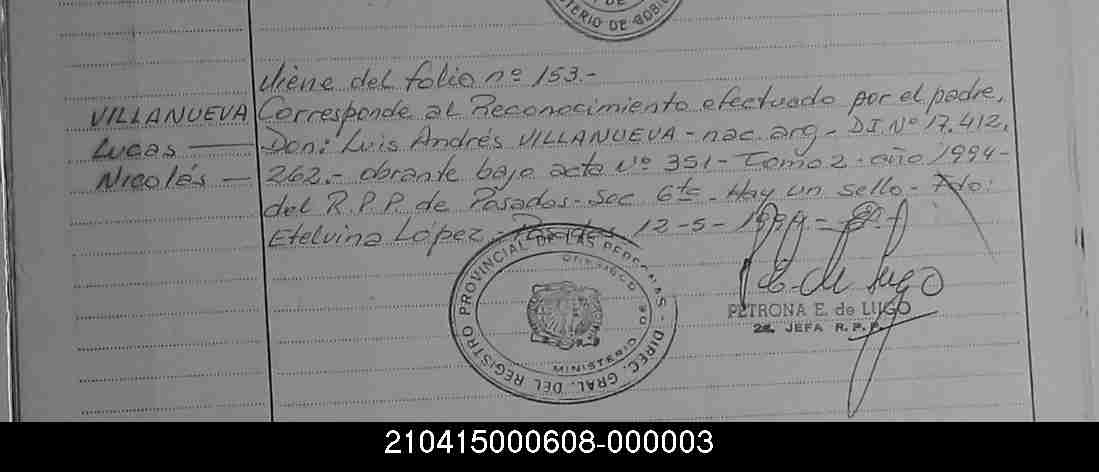 DE
MINISTERIO DE GOBIE
Viene del folio nº 153.-
VILLANUEVA Corresponde al Reconocimiento efectuado por el padre,
Lucas — Don: Luis Andrés VILLANUEVA - nac. arg. - D.I. Nº 17.412.
Nicolás — 262.- obrante bajo acta Nº 351 - Tomo 2 - año 1994-
del R.P.P. de Posadas - Sec 6ta - Hay un sello - Fdo:
Etelvina López - Posadas 12-5-1999.-
DIREC. GRAL. DEL REGISTRO PROVINCIAL DE LAS PERSONAS
MINISTERIO DE GOBIERNO
E. de Lugo
PETRONA E. de LUGO
2a. JEFA R.P.P.
210415000608-000003